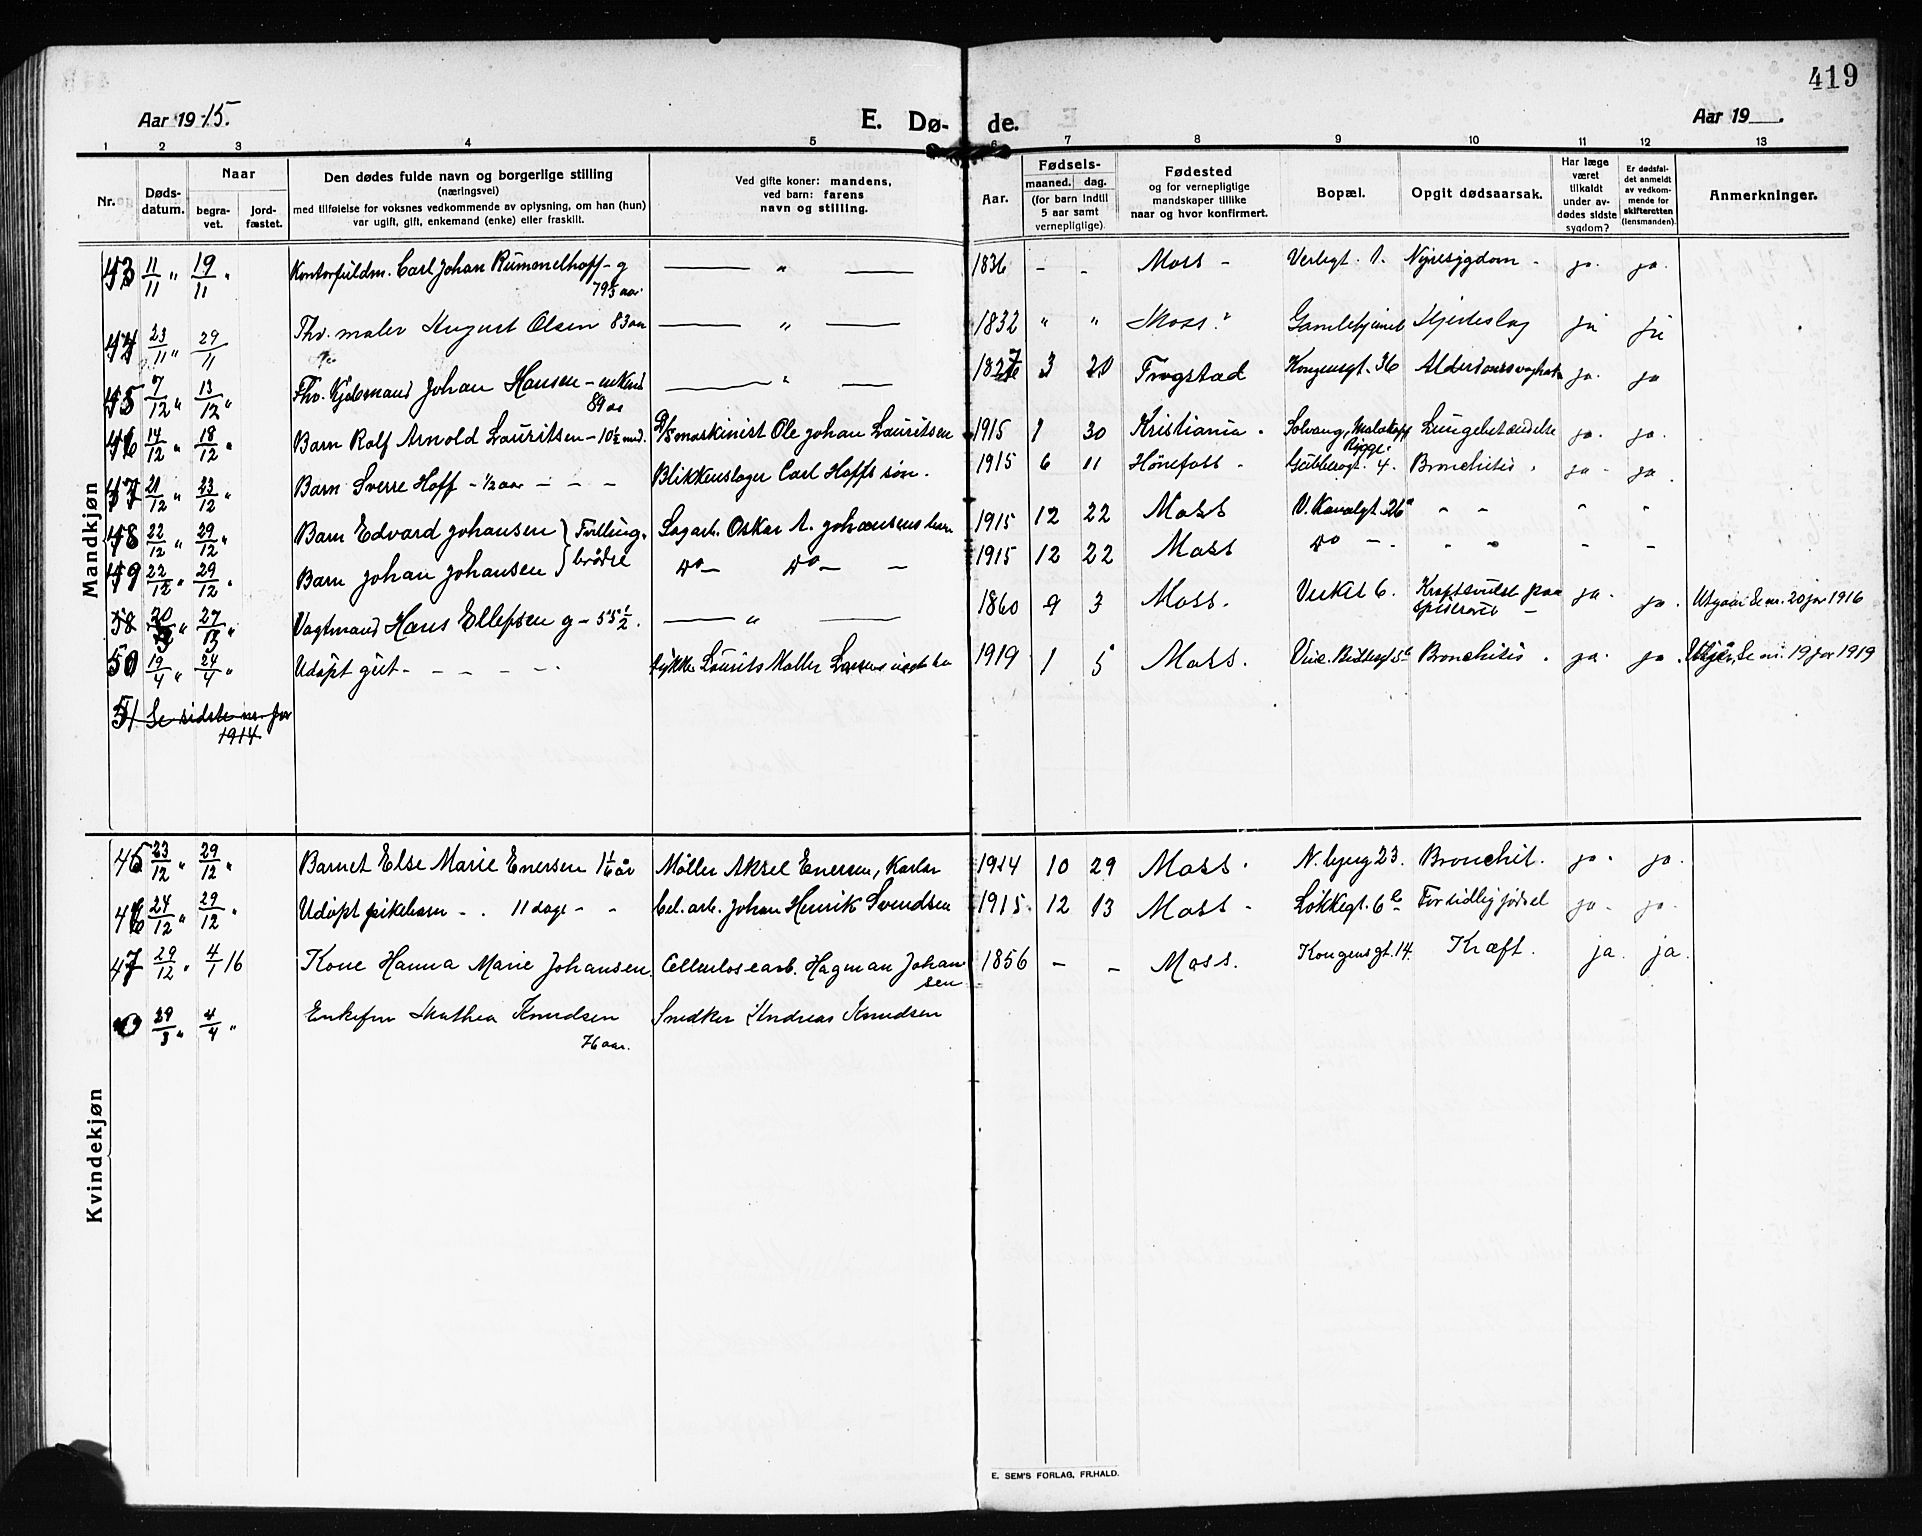 419
Aar 1915.
E. Dø-
de.
Aar 19 .
1 2 3 4 5 6 7 8 9 10 11 12 13
Nr.
Døds-
datum.
Naar
begra-
vet.
Jord-
fæstet.
Den dødes fulde navn og borgerlige stilling
(næringsvei)
med tilføielse for voksnes vedkommende av oplysning, om han (hun)
var ugift, gift, enkemand (enke) eller fraskilt.
Ved gifte koner: mandens,
ved barn: farens
navn og stilling.
Aar.
Fødsels-
maaned. dag.
(for barn indtil
5 aar samt
vernepligtige)
Fødested
og for vernepligtige
mandskaper tillike
naar og hvor konfirmert.
Bopæl.
Opgit dødsaarsak.
Har læge
været
tilkaldt
under av-
dødes sidste
sygdom?
Er dødsfal-
det anmeldt
av vedkom-
mende for
skifteretten
(lensmanden).
Anmerkninger.
Mandkjøn
43 11/11 " 19/11 " Kontorfuldm. Carl Johan Rummelhoff - g — " — 1836 - - Moss - Verlegt. 1. Nyresygdom - ja. ja.
79 5/ aar
44 23/11 " 29/11 Fhv. maler August Olsen 83 aar — " — 1832 " " Moss. " Gamlehjemmet Hjerteslag ja ja
45 7/12 " 13/12 " Fhv. Johan Hansen - enkem — " — 1827 3 20 Trøgstad Kongensgt. 36 Alderdomssvaghet ja. ja
89 aar
46 14/12 " 18/12 " Barn Rolf Arnold Lauritsen - 10½ mnd. D/S maskinist Ole Johan Lauritsen 1915 1 30 Kristiania . Solvang, Malakoff Lungebetændelse ja. ja.
Rygge.
47 21/12 " 23/12 " Barn Sverre Hoff - ½ aar - - - Blikkenslager Carl Hoffs søn. 1915 6 11 Hønefoss - Gubberogt. 4. Bronchitis . ja - ja.
48 22/12 " 29/12 " Barn Edvard Johansen } Tvilling- Sagarb. Oskar A. Johansens barn 1915 12 22 Moss V. Kanalgt. 26 " - - " "
49 22/12 " 29/12 " Barn Johan Johansen } brødre do - do - - 1915 12 22 Moss do - . . " - -
58 20/ " 27/ " Vagtmand Hans Ellefsen g - 55 ½. — " — 1860 9 3 Moss. Verket 6. Kræftsvulst paa ja. ja. Utgaar Se nr. 20 for 1916
spiserøret -
50 19/4 " 24/4 " Udøpt gut - - - - -. Lauritz Møller Larsens 1919 1 5 Moss. Bronchitis . ja. ja. Utgår, Se nr. 19 for 1919
51 Se sidste nr. for
1914
Kvindekjøn
45 23/12 " 29/12 " Barnet Else Marie Enersen 1 1/6 år Møller Aksel Enersen, 1914 10 29 Moss. N. bjerg 23. Bronchit. ja. ja.
46 24/12 " 29/12 " Udøpt pikebarn - . 11 dage - - Cel. arb. Johan Henrik Svendsen 1915. 12 13 Moss - Løkkegt. 6 b For tidlig fødsel ja - ja.
47 29/12 " 4/1 16 Kone Hanna Marie Johansen. Cellulosearb. Hagman Johan 1856 - - Moss. Kongensgt. 14. Kræft. ja. ja.
sen
29/3 " 4/4 " Enkefru Mathea Knudsen Snedker Andreas Knudsen
76 aar.
E. SEM'S FORLAG, FR.HALD.